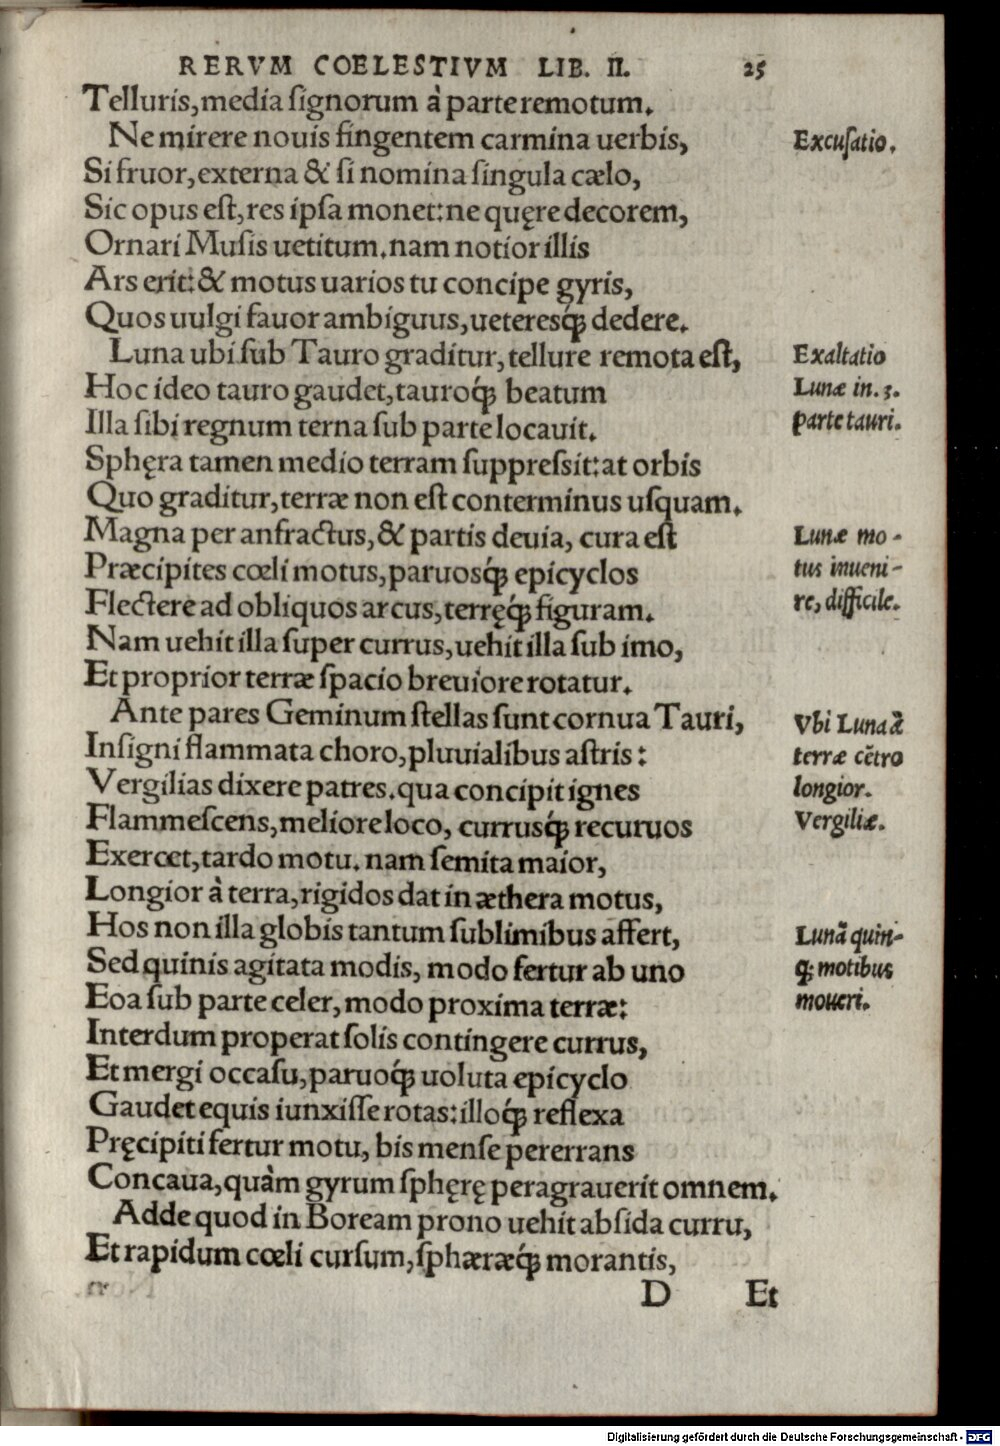 RERVM COELESTIVM LIB. II. 25
Telluris, media ſignorum à parte remotum.
Ne mirere nouis fingentem carmina uerbis,
Excuſatio.
Si fruor, externa & ſi nomina ſingula cælo,
Sic opus eſt, res ipſa monet: ne quęre decorem,
Ornari Muſis uetitum. nam notior illis
Ars erit: & motus uarios tu concipe gyris,
Quos uulgi fauor ambiguus, ueteresq́ꝫ dedere.
Luna ubi ſub Tauro graditur, tellure remota eſt,
Exaltatio
Hoc ideo tauro gaudet, tauroq́ꝫ beatum
Lunæ in. 3.
Illa ſibi regnum terna ſub parte locauit.
parte tauri.
Sphęra tamen medio terram ſuppreſsit: at orbis
Quo graditur, terræ non eſt conterminus uſquam.
Magna per anfractus, & partis deuia, cura eſt
Lunæ mo-
Præcipites cœli motus, paruosq́ꝫ epicyclos
tus inueni-
Flectere ad obliquos arcus, terręq́ꝫ figuram.
re, difficile.
Nam uehit illa ſuper currus, uehit illa ſub imo,
Et proprior terræ ſpacio breuiore rotatur.
Ante pares Geminum ſtellas ſunt cornua Tauri,
Vbi Luna à
Inſigni flammata choro, pluuialibus aſtris:
terræ cētro
Vergilias dixere patres. qua concipit ignes
longior.
Flammeſcens, meliore loco, currusq́ꝫ recuruos
Vergiliæ.
Exercet, tardo motu. nam ſemita maior,
Longior à terra, rigidos dat in æthera motus,
Hos non illa globis tantum ſublimibus affert,
Lunā quin-
Sed quinis agitata modis, modo fertur ab uno
qꝫ motibus
Eoa ſub parte celer, modo proxima terræ:
moueri.
Interdum properat ſolis contingere currus,
Et mergi occaſu, paruoq́ꝫ uoluta epicyclo
Gaudet equis iunxiſſe rotas: illoq́ꝫ reflexa
Pręcipiti fertur motu, bis menſe pererrans
Concaua, quàm gyrum ſphęrę peragrauerit omnem.
Adde quod in Boream prono uehit abſida curru,
Et rapidum cœli curſum, ſphæræq́ꝫ morantis,
D Et
Digitalisierung gefördert durch die Deutsche Forschungsgemeinschaft - DFG